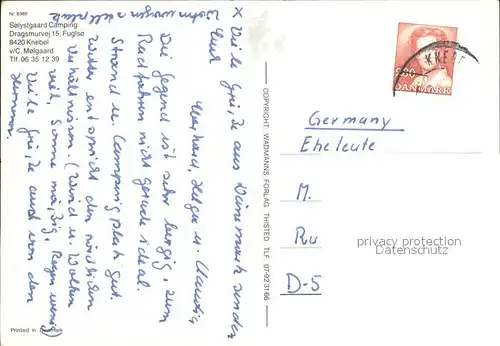 Nr. 8369
Sølystgaard Camping
Dragsmurvej 15, Fuglsø
8420 Knebel
v/C. Mølgaard
Tlf. 06 35 12 39
x Viele Grüße aus Dänemark senden
Euch
Gerhard, Helga u. Claudia
Die Gegend ist sehr bergig, zum
Radfahren nicht gerade ideal.
Strand u. Campingplatz gut.
Wetter entspricht den nördlichen
Verhältnissen. (Wind u. Wolken
viel, Sonne mäßig, Regen wenig)
Viele Grüße auch von den
COPYRIGHT: WADMANNS FORLAG THISTED TLF. 07-92 31 66
KNEBEL
DANMARK
Germany
Eheleute
M.
Ru
D-5
privacy protection
Datenschutz
Printed in Denmark